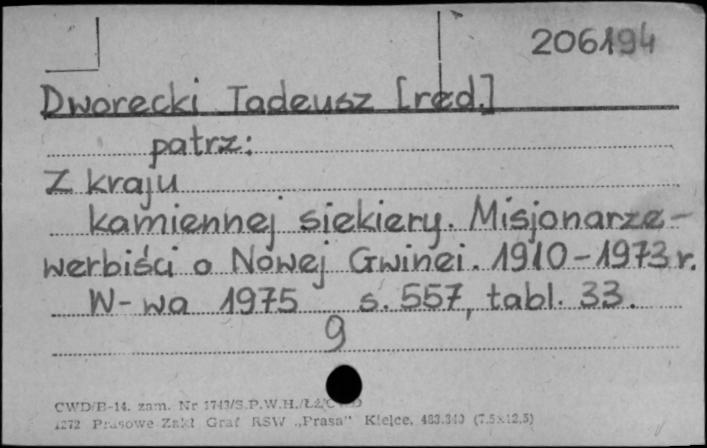 206194
Dworecki Tadeusz [red.]
patrz:
Z kraju
kamiennej siekiery. Misjonarze-
werbiści o Nowej Gwinei. 1910-1973 r.
W-wa 1975 s. 557, tabl. 33.
9
CWD/B-14. zam. Nr 1743/S.P.W.H./
1272 Prasowe Zakł Graf RSW „Prasa" Kielce. 483.340 (7.5x12.5)